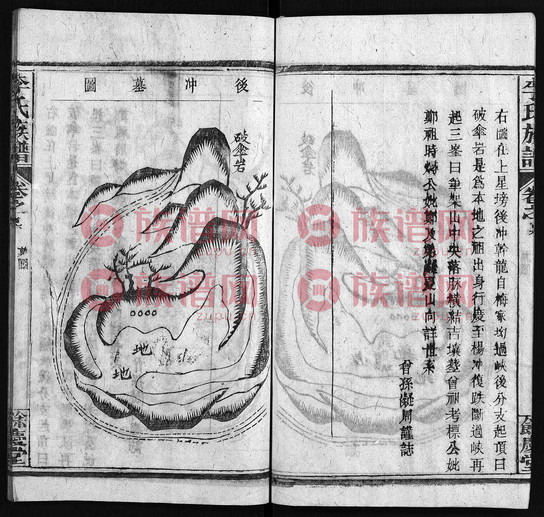 李氏族譜
右圖在上星塝後冲幹龍自梅家坳過峽後分支起頂曰
破傘岩是爲本地之祖出身行慶至楊冲復跌斷過峽再
起三峯曰筆架山中央落脉橫結吉壤葬曾祖考標公妣
鄭祖時賜公妣鄭
山向詳世系
曾孫凝周謹誌
後冲墓圖
破傘岩
地
地
李氏族譜
墓圖
餘慶堂
族谱网
zupu.cn
族谱网
zupu.cn
族谱网
zupu.cn
族谱网
zupu.cn